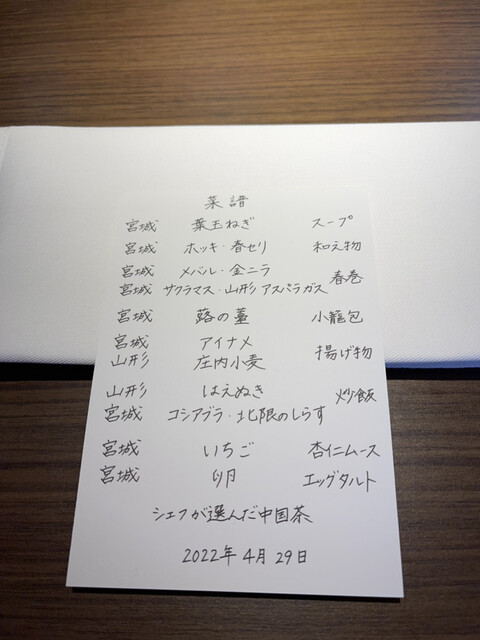 菜譜
宮城 葉玉ねぎ スープ
宮城 ホッキ・春セリ 和え物
宮城 メバル・金ニラ 春巻
宮城 サクラマス・山形アスパラガス
宮城 蕗の薹 小籠包
宮城 アイナメ 揚げ物
山形 庄内小麦
山形 はえぬき 炒飯
宮城 コシアブラ・北限のしらす
宮城 いちご 杏仁ムース
宮城 卵 エッグタルト
シェフが選んだ中国茶
2022年4月29日